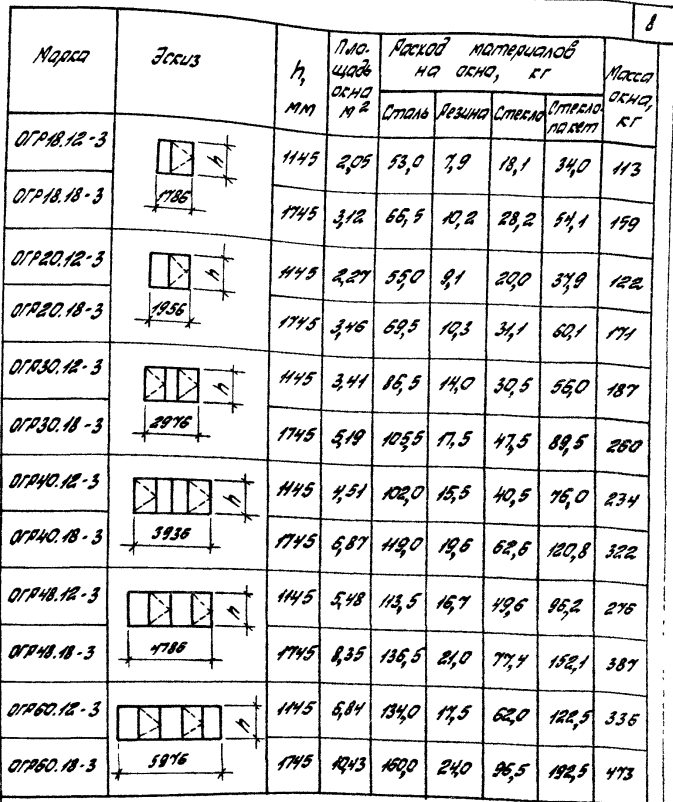 8
Марка Эскиз h, мм Пло-щадь окна м² Расход материалов на окна, кг Масса окна, кг
Сталь Резина Стекло Стекло-пакет
ОГР18.12-3 h 1145 2,05 53,0 7,9 18,1 34,0 113
ОГР18.18-3 1786 1745 3,12 66,5 10,2 28,2 54,1 159
ОГР20.12-3 h 1145 2,27 55,0 9,1 20,0 37,9 122
ОГР20.18-3 1956 1745 3,46 69,5 10,3 31,1 60,1 171
ОГР30.12-3 h 1145 3,41 86,5 14,0 30,5 56,0 187
ОГР30.18-3 2976 1745 5,19 105,5 17,5 47,5 89,5 260
ОГР40.12-3 h 1145 4,51 102,0 15,5 40,5 76,0 234
ОГР40.18-3 3936 1745 6,87 119,0 19,6 62,6 120,8 322
ОГР48.12-3 h 1145 5,48 113,5 16,7 49,6 96,2 276
ОГР48.18-3 4786 1745 8,35 136,5 21,0 77,4 152,1 387
ОГР60.12-3 h 1145 6,84 134,0 17,5 62,0 122,5 336
ОГР60.18-3 5976 1745 10,43 160,0 24,0 96,5 192,5 473